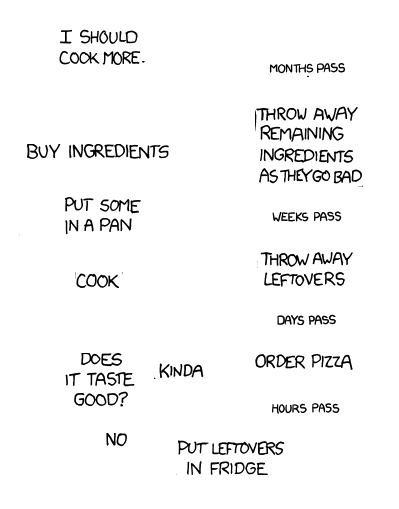 I SHOULD
COOK MORE.
BUY INGREDIENTS
PUT SOME
IN A PAN
COOK
DOES
IT TASTE
GOOD?
KINDA
NO
PUT LEFTOVERS
IN FRIDGE
HOURS PASS
ORDER PIZZA
DAYS PASS
THROW AWAY
LEFTOVERS
WEEKS PASS
THROW AWAY
REMAINING
INGREDIENTS
AS THEY GO BAD
MONTHS PASS